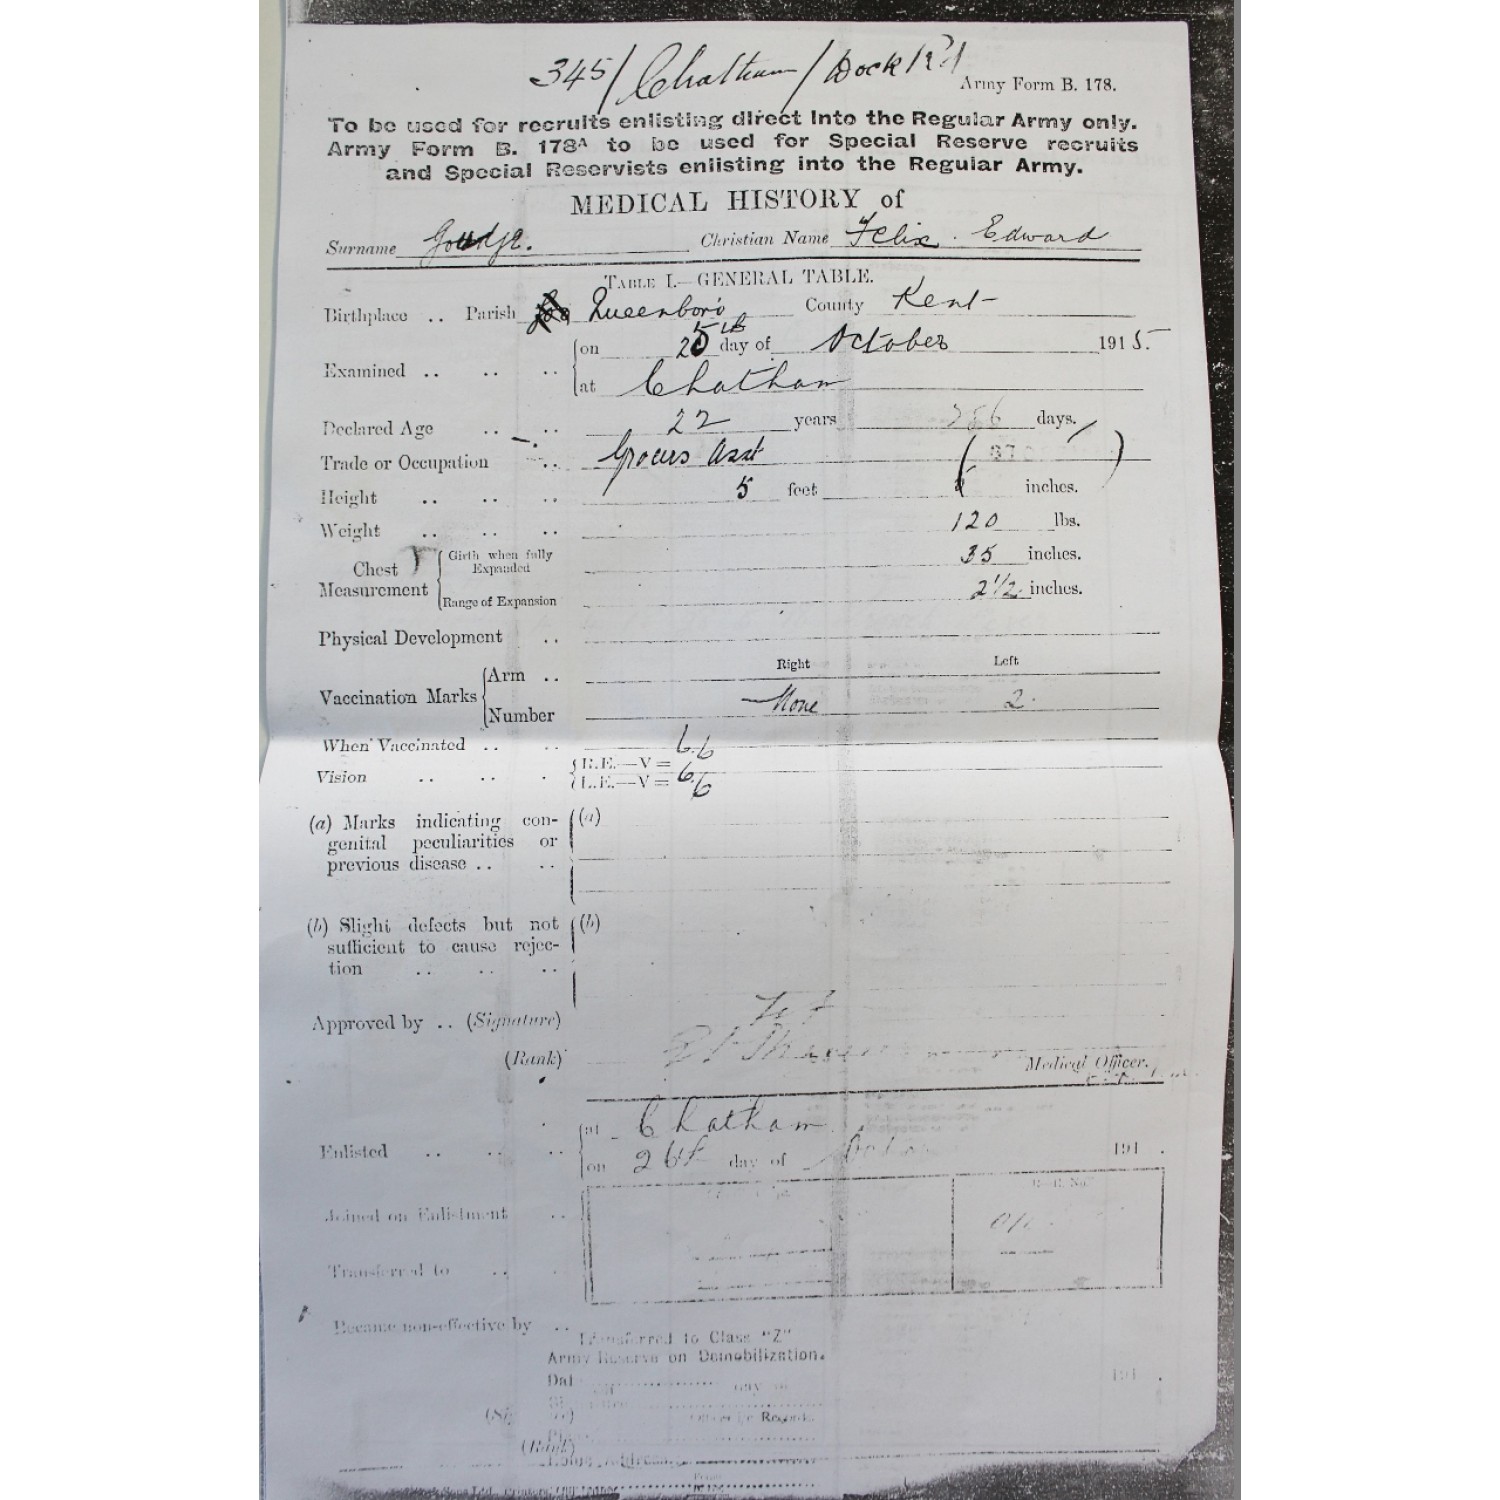 345/Chatham/Dock Rd
Army Form B. 178.
To be used for recruits enlisting direct into the Regular Army only.
Army Form B. 178A to be used for Special Reserve recruits
and Special Reservists enlisting into the Regular Army.
MEDICAL HISTORY of
Surname Goudge. Christian Name Felix Edward
TABLE I.—GENERAL TABLE.
Birthplace .. Parish Queenboro County Kent
Examined .. .. .. on 25th day of October 1915.
at Chatham
Declared Age .. .. 22 years days.
Trade or Occupation .. Grocers Asst
Height .. .. .. 5 feet inches.
Weight .. .. .. 120 lbs.
Chest Measurement Girth when fully Expanded 35 inches.
Range of Expansion 2 1/2 inches.
Physical Development ..
Right Left
Vaccination Marks Arm ..
Number None 2.
When Vaccinated .. ..
Vision .. .. . R.E.—V = 6/6
L.E.—V = 6/6
(a) Marks indicating con- (a)
genital peculiarities or
previous disease .. ..
(b) Slight defects but not (b)
sufficient to cause rejec-
tion .. .. ..
Approved by .. (Signature)
(Rank) Medical Officer.
at Chatham
Enlisted .. .. .. on 26th day of 191 .
Joined on Enlistment ..
Transferred to .. .
Became non-effective by ..
Transferred to Class "Z"
Army Reserve on Demobilization.
191 .
Officer i/c Records.
(Rank)